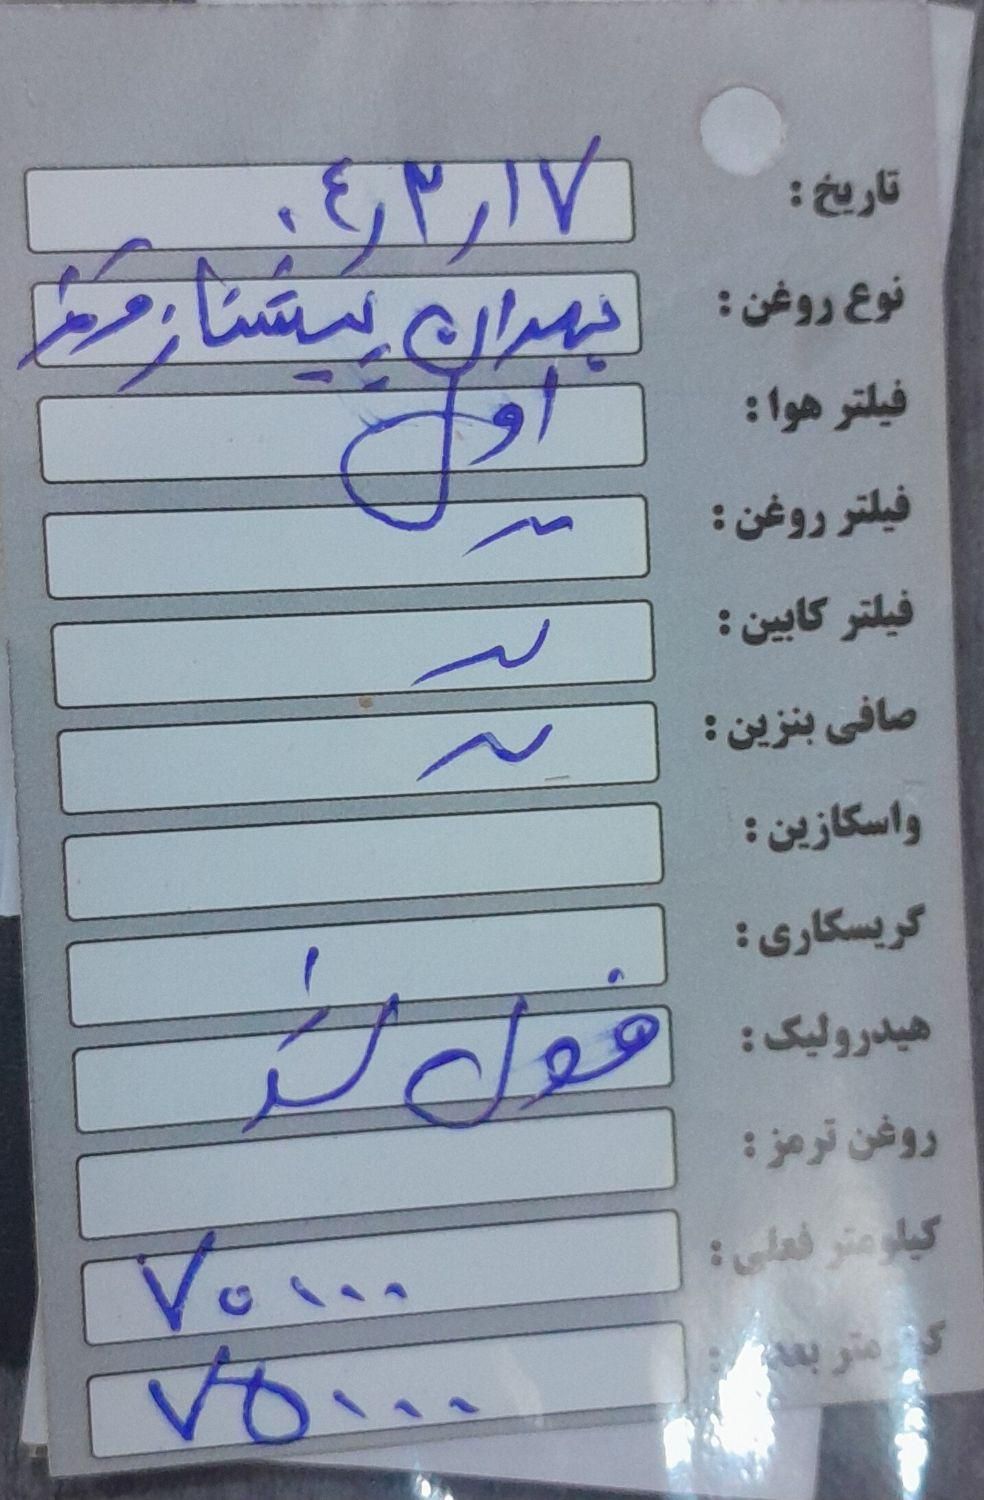 تاریخ : ۰۴٫۳٫۱۷
نوع روغن : بهران پیشتاز قرمز
فیلتر هوا : اول
فیلتر روغن : ~
فیلتر کابین : ~
صافی بنزین : ~
واسکازین :
گریسکاری :
هیدرولیک : فول
روغن ترمز :
کیلومتر فعلی : ۷۰۰۰۰
کیلومتر بعدی : ۷۵۰۰۰